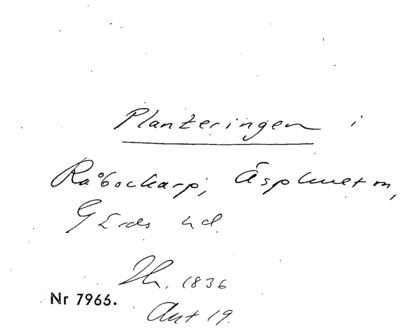 Planteringen i
Råbockarp, Äsphult sn,
Gärds hd.
Th. 1836
Nr 7966.
Aut 19.